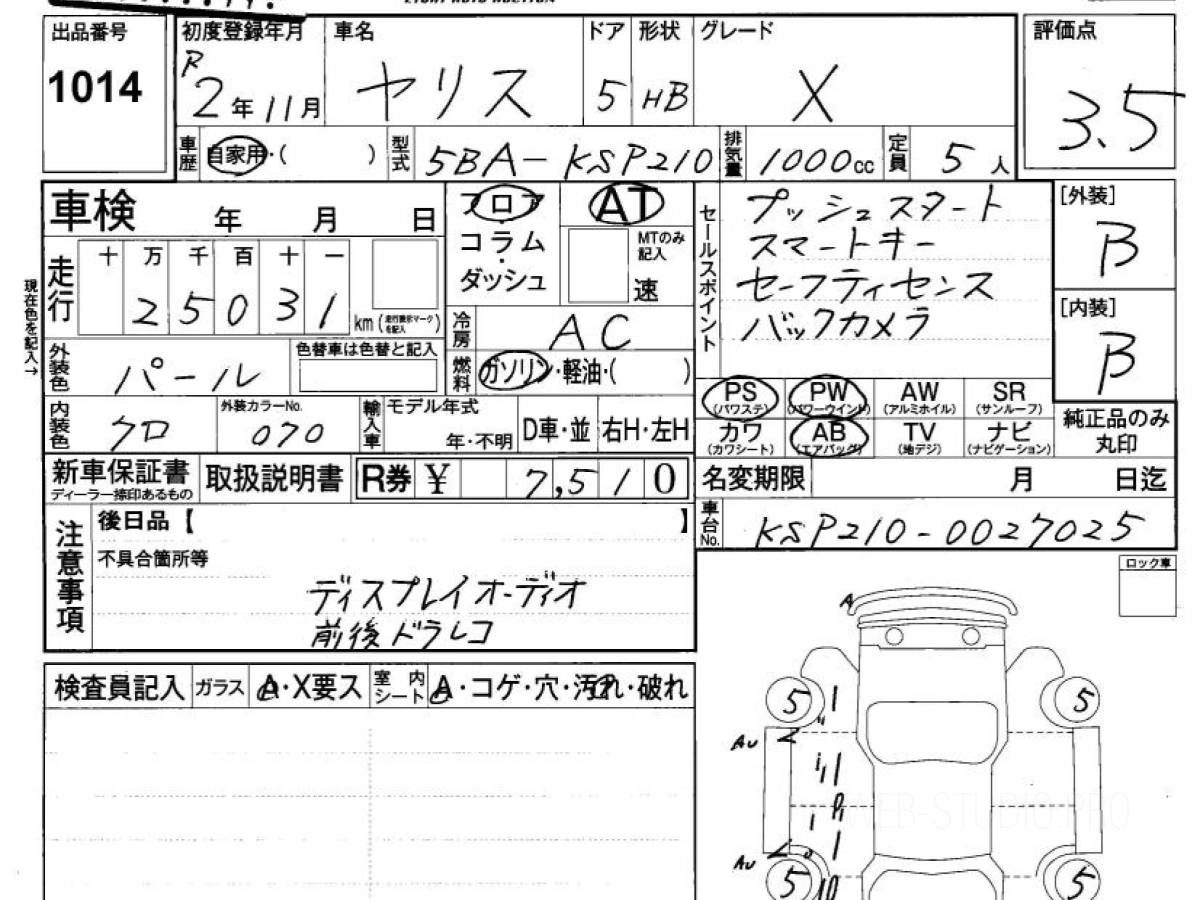 出品番号
1014
初度登録年月
R2年11月
車名
ヤリス
ドア
5
形状
HB
グレード
X
評価点
3.5
車歴
自家用・( )
型式
5BA-KSP210
排気量
1000cc
定員
5人
車検 年 月 日
フロア
コラム
・
ダッシュ
AT
MTのみ記入
速
セールスポイント
プッシュスタート
スマートキー
セーフティセンス
バックカメラ
[外装]
B
[内装]
B
現在色を記入→
走行
十 万 千 百 十 一
2 5 0 3 1
km(走行表示マークを記入)
冷房
AC
燃料
ガソリン・軽油・( )
外装色
パール
色替車は色替と記入
内装色
クロ
外装カラーNo.
070
輸入車
モデル年式
年・不明
D車・並
右H・左H
PS
(パワステ)
PW
(パワーウインド)
AW
(アルミホイル)
SR
(サンルーフ)
カワ
(カワシート)
AB
(エアバッグ)
TV
(地デジ)
ナビ
(ナビゲーション)
純正品のみ
丸印
新車保証書
ディーラー捺印あるもの
取扱説明書
R券 ¥ 7,510
名変期限 月 日迄
車台No.
KSP210-0027025
注意事項
後日品【 】
不具合箇所等
ディスプレイオーディオ
前後ドラレコ
ロック車
検査員記入
ガラス
A・X要ス
室内シート
A・コゲ・穴・汚れ・破れ
A
5
5
AU
AU
5
5
WEB-STUDIO.PRO